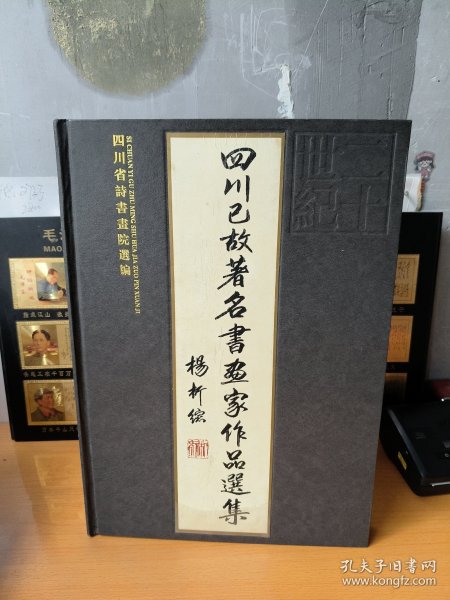 四川已故著名書畫家作品選集
楊析综
四川省詩書畫院選編
SI CHUAN YI GU ZHU MING SHU HUA JIA ZUO PIN XUAN JI
二十
世紀
毛
MAO
孔夫子旧书网
www.kongfz.com